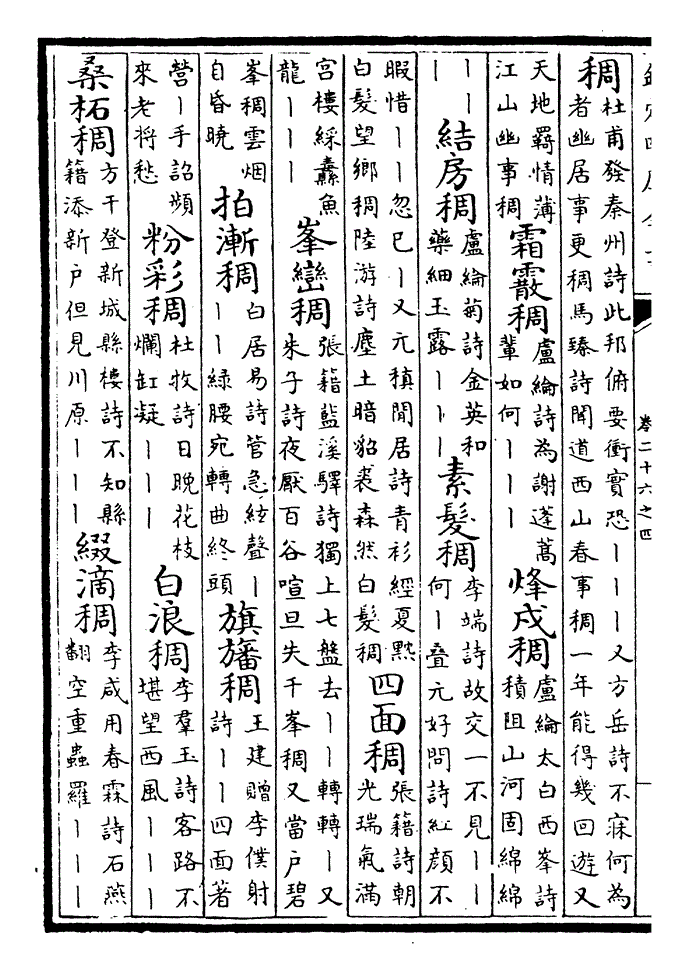 卷二十六之四
稠
杜甫發秦州詩此邦俯要衝實恐丨丨丨又方岳詩不寐何為
者幽居事更稠馬臻詩聞道西山春事稠一年能得幾回遊又
天地羇情薄
江山幽事稠
霜霰稠
盧綸詩為謝蓬蒿
輩如何丨丨丨
烽戍稠
盧綸太白西峯詩
積阻山河固綿綿
丨丨
丨
結房稠
盧綸菊詩金英和
藥細玉露丨丨丨
素髮稠
李端詩故交一不見丨丨
何丨疊元好問詩紅顏不
暇惜丨丨忽已丨又元稹閒居詩青衫經夏黕
白髮望鄉稠陸游詩塵土暗貂裘森然白髮稠
四面稠
張籍詩朝
光瑞氣滿
宮樓綵纛魚
龍丨丨丨
峯巒稠
張籍藍溪驛詩獨上七盤去丨丨轉轉丨又
朱子詩夜厭百谷喧旦失千峯稠又當戶碧
峯稠雲烟
自昏曉
拍漸稠
白居易詩管急絃聲丨
丨丨綠腰宛轉曲終頭
旗旛稠
王建贈李僕射
詩丨丨四面著
營丨手詔頻
來老將愁
粉彩稠
杜牧詩日晚花枝
爛缸凝丨丨丨
白浪稠
李羣玉詩客路不
堪望西風丨丨丨
桑柘稠
方干登新城縣樓詩不知縣
籍添新戶但見川原丨丨丨
綴滴稠
李咸用春霖詩石燕
翻空重蟲羅丨丨丨